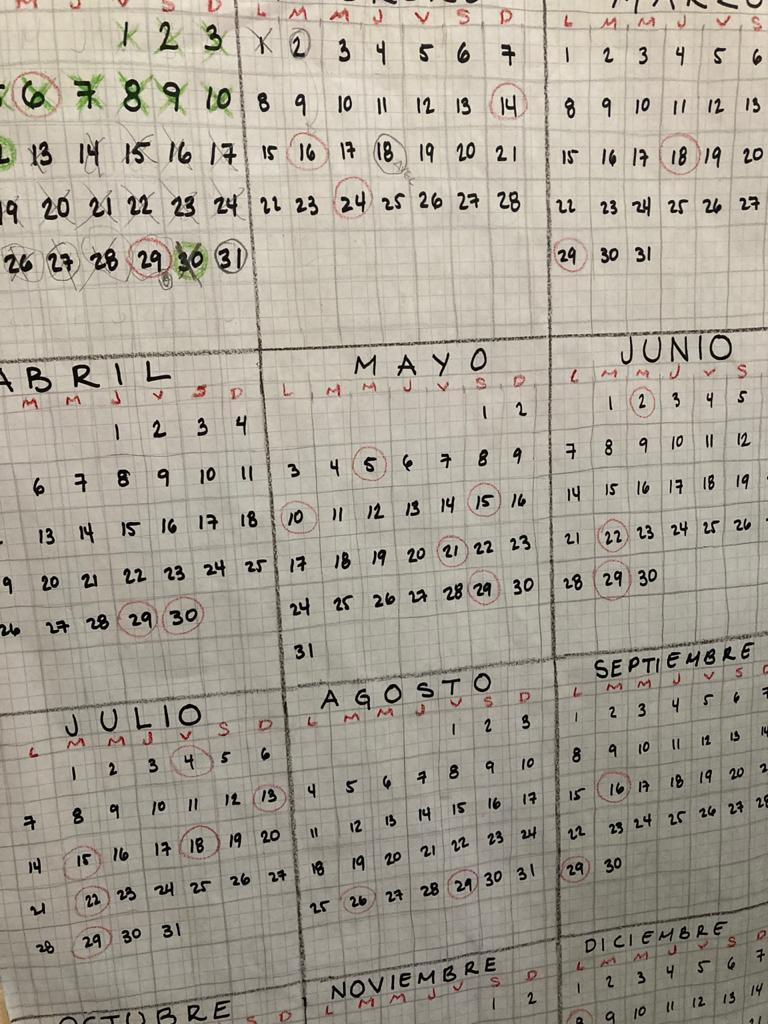 M J V S D
1 2 3
6 7 8 9 10
13 14 15 16 17
19 20 21 22 23 24
26 27 28 29 30 31
L M M J V S D
1 2 3 4 5 6 7
8 9 10 11 12 13 14
15 16 17 18 19 20 21
22 23 24 25 26 27 28
L M M J V S
1 2 3 4 5 6
8 9 10 11 12 13
15 16 17 18 19 20
22 23 24 25 26 27
29 30 31
ABRIL
M M J V S D
1 2 3 4
6 7 8 9 10 11
13 14 15 16 17 18
9 20 21 22 23 24 25
26 27 28 29 30
MAYO
L M M J V S D
1 2
3 4 5 6 7 8 9
10 11 12 13 14 15 16
17 18 19 20 21 22 23
24 25 26 27 28 29 30
31
JUNIO
L M M J V S
1 2 3 4 5
7 8 9 10 11 12
14 15 16 17 18 19
21 22 23 24 25 26
28 29 30
JULIO
L M M J V S D
1 2 3 4 5 6
7 8 9 10 11 12 13
14 15 16 17 18 19 20
21 22 23 24 25 26 27
28 29 30 31
AGOSTO
L M M J V S D
1 2 3
4 5 6 7 8 9 10
11 12 13 14 15 16 17
18 19 20 21 22 23 24
25 26 27 28 29 30 31
SEPTIEMBRE
L M M J V S D
1 2 3 4 5 6 7
8 9 10 11 12 13 14
15 16 17 18 19 20 2
22 23 24 25 26 27 28
29 30
OCTUBRE
S D
NOVIEMBRE
L M M J V S D
1 2
DICIEMBRE
L M M J V S D
1 2 3 4 5 6 7
8 9 10 11 12 13 14